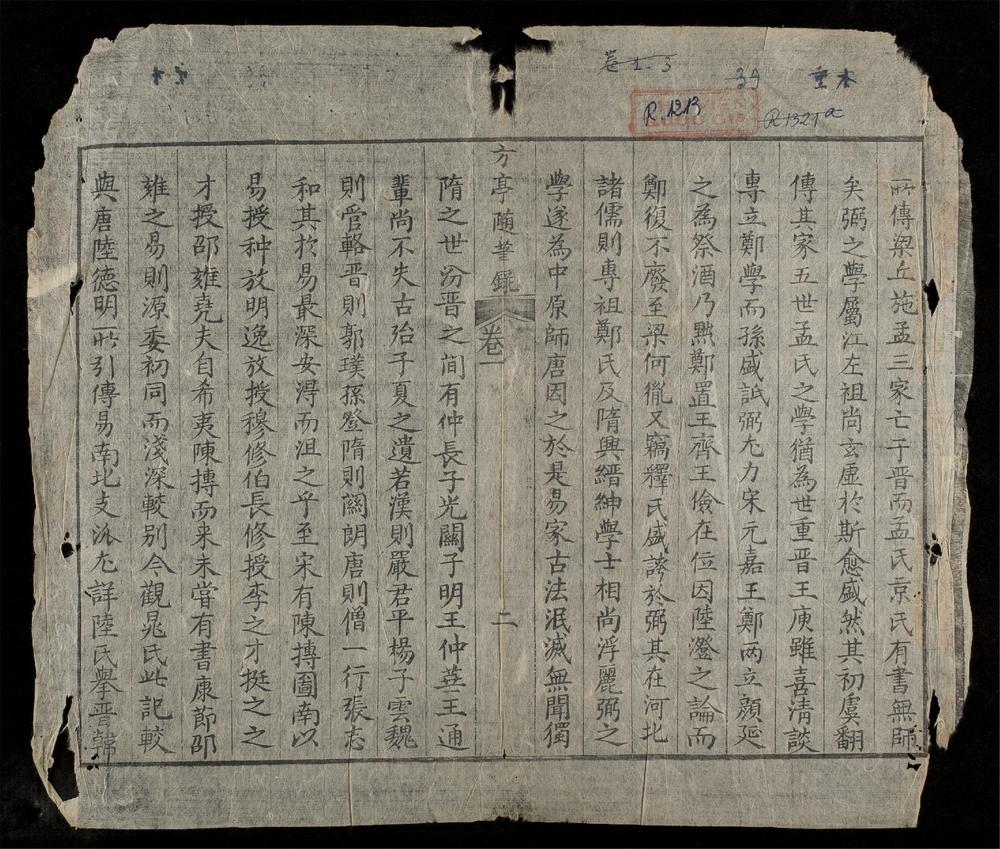 卷 1-3
39
重本
R.1213
R 1321a
所傳梁丘施孟三家亡于晋而孟氏京氏有書無師
矣弼之學屬江左祖尚玄虛於斯愈盛然其初虞翻
傳其家五世孟氏之學猶為世重晋王庾雖喜清談
專立鄭學而孫盛詆弼尢力宋元嘉王鄭两立顔延
之為祭酒乃黙鄭置王齊王儉在位因陸澄之論而
鄭復不廢至梁何胤又竊釋氏盛談於弼其在河北
諸儒則專祖鄭氏及隋興縉紳學士相尚浮麗弼之
學遂為中原師唐因之於是易家古法泯滅無聞獨
方亭隨筆錄
卷一
二
隋之世汾晋之间有仲長子光關子明王仲華王通
輩尚不失古殆子夏之遺若漢則嚴君平楊子雲魏
則管輅晋則郭璞孫登隋則關朗唐則僧一行張志
和其於易最深安淂而沮之乎至宋有陳摶圖南以
易授种放明逸放授穆修伯長修授李之才挺之之
才授邵雍堯夫自希夷陳摶而来未嘗有書康節邵
雍之易則源委初同而淺深較别今觀晁氏此記較
與唐陸德明所引傳易南北支泒尢詳陸氏擧晋韓